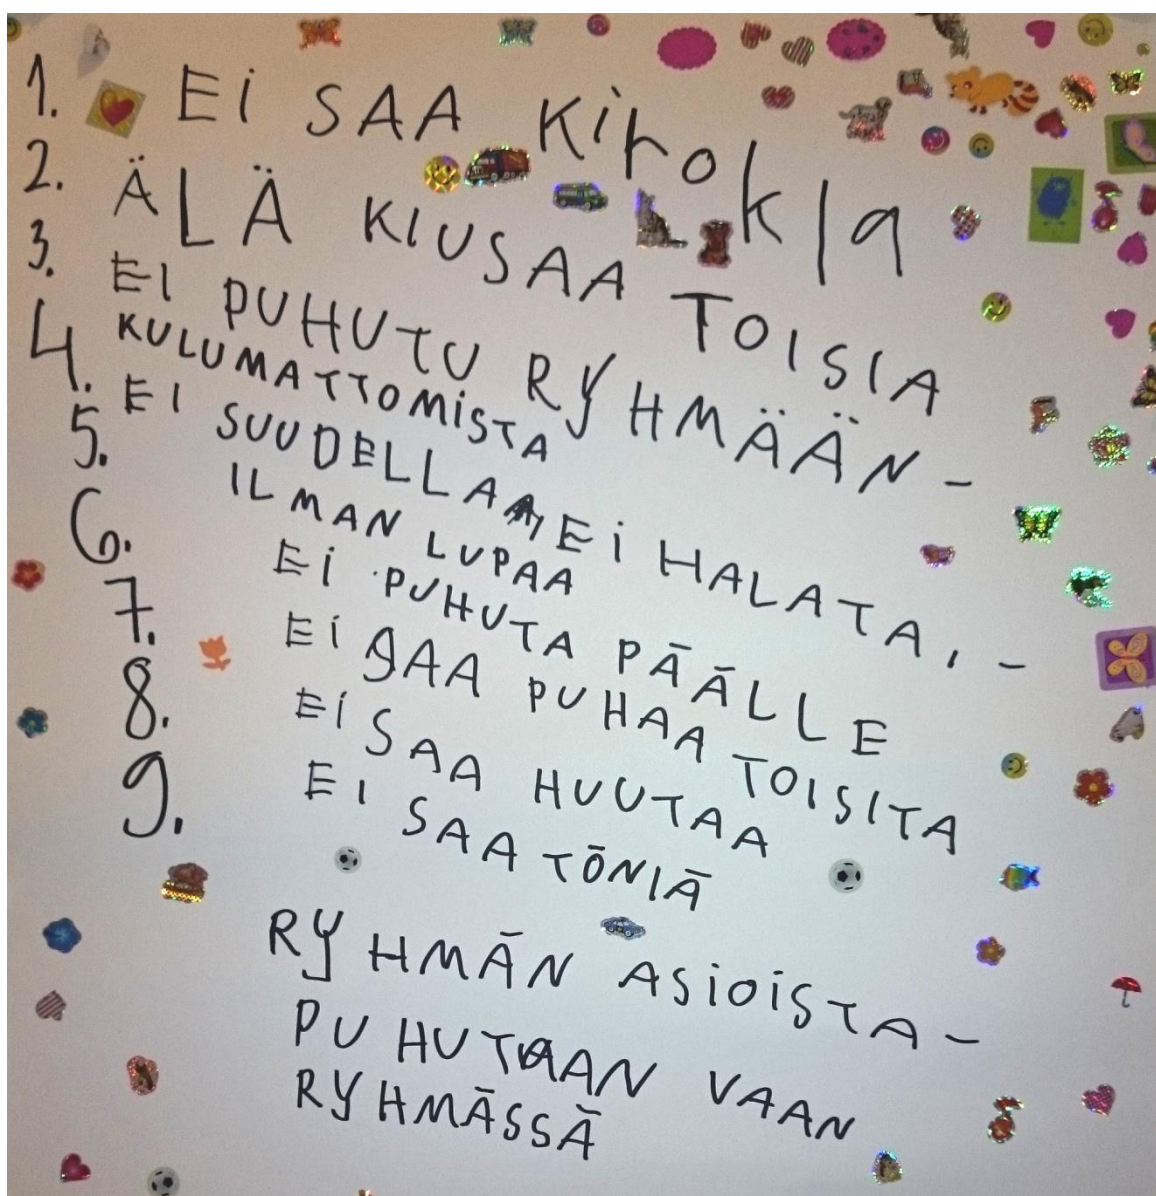 1. Ei SAA Kirokla
2. ÄLÄ KIUSAA TOISIA
3. EI PUHUTU RYHMÄÄN-
4. KULUMATTOMISTA
5. EI SUUDELLA, Ei HALATA, -
ILMAN LUPAA
6. Ei PUHUTA PÄÄLLE
7. Ei SAA PUHAA TOISITA
8. Ei SAA HUUTAA
9. EI SAA TÖNIÄ
RYHMÄN ASiOiSTA-
PUHUTAAN VAAN
RYHMÄSSÄ